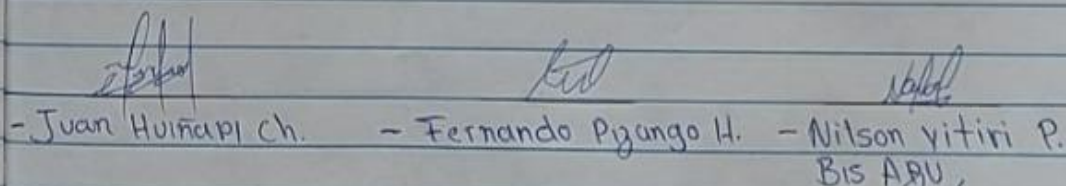 - Juan Huiñapi Ch. - Fernando Pizango H. - Nilson Yitiri P.
Bis ABU,